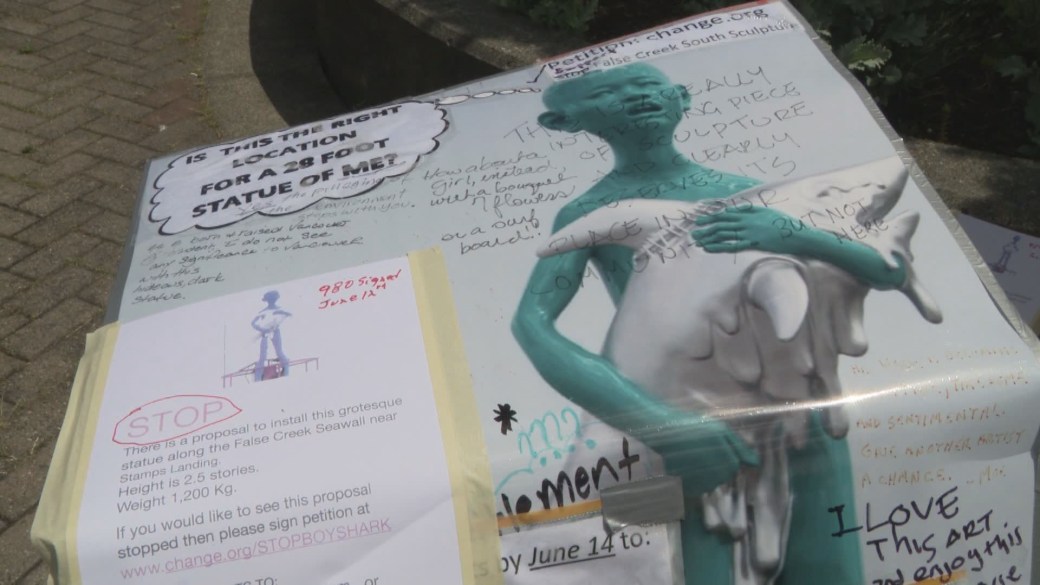 Petition: change.org
False Creek South Sculpture
IS THIS THE RIGHT
LOCATION
FOR A 28 FOOT
STATUE OF ME?
How about a
girl, instead
with a bouquet
of flowers
or a surf
board!!
REALLY
INTERESTING PIECE
OF SCULPTURE
AND CLEARLY
DESERVES IT'S
PLACE IN OUR
COMMUNITY
BUT NOT
HERE
the environment
with you.
As a born + raised Vancouver
I do not see
any significance in Vancouver
with this
hideous, dark
statue.
980 signed
June 12th
STOP
There is a proposal to install this grotesque
statue along the False Creek Seawall near
Stamps Landing.
Height is 2.5 stories.
Weight 1,200 Kg.
If you would like to see this proposal
stopped then please sign petition at
www.change.org/STOPBOYSHARK
*
???
lement
by June 14 to:
AND SENTIMENTAL.
GIVE ANOTHER ARTIST
A CHANCE.
I LOVE
THIS ART
and enjoy this